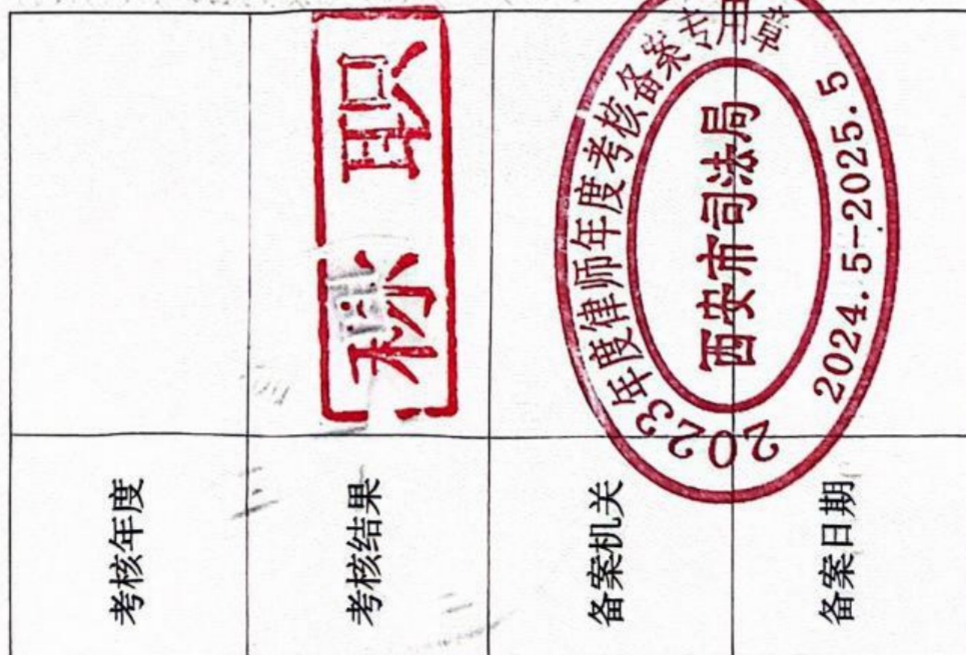 考核年度
考核结果
称职
备案机关
备案日期
2023年度律师年度考核备案专用章
西安市司法局
2024.5-2025.5